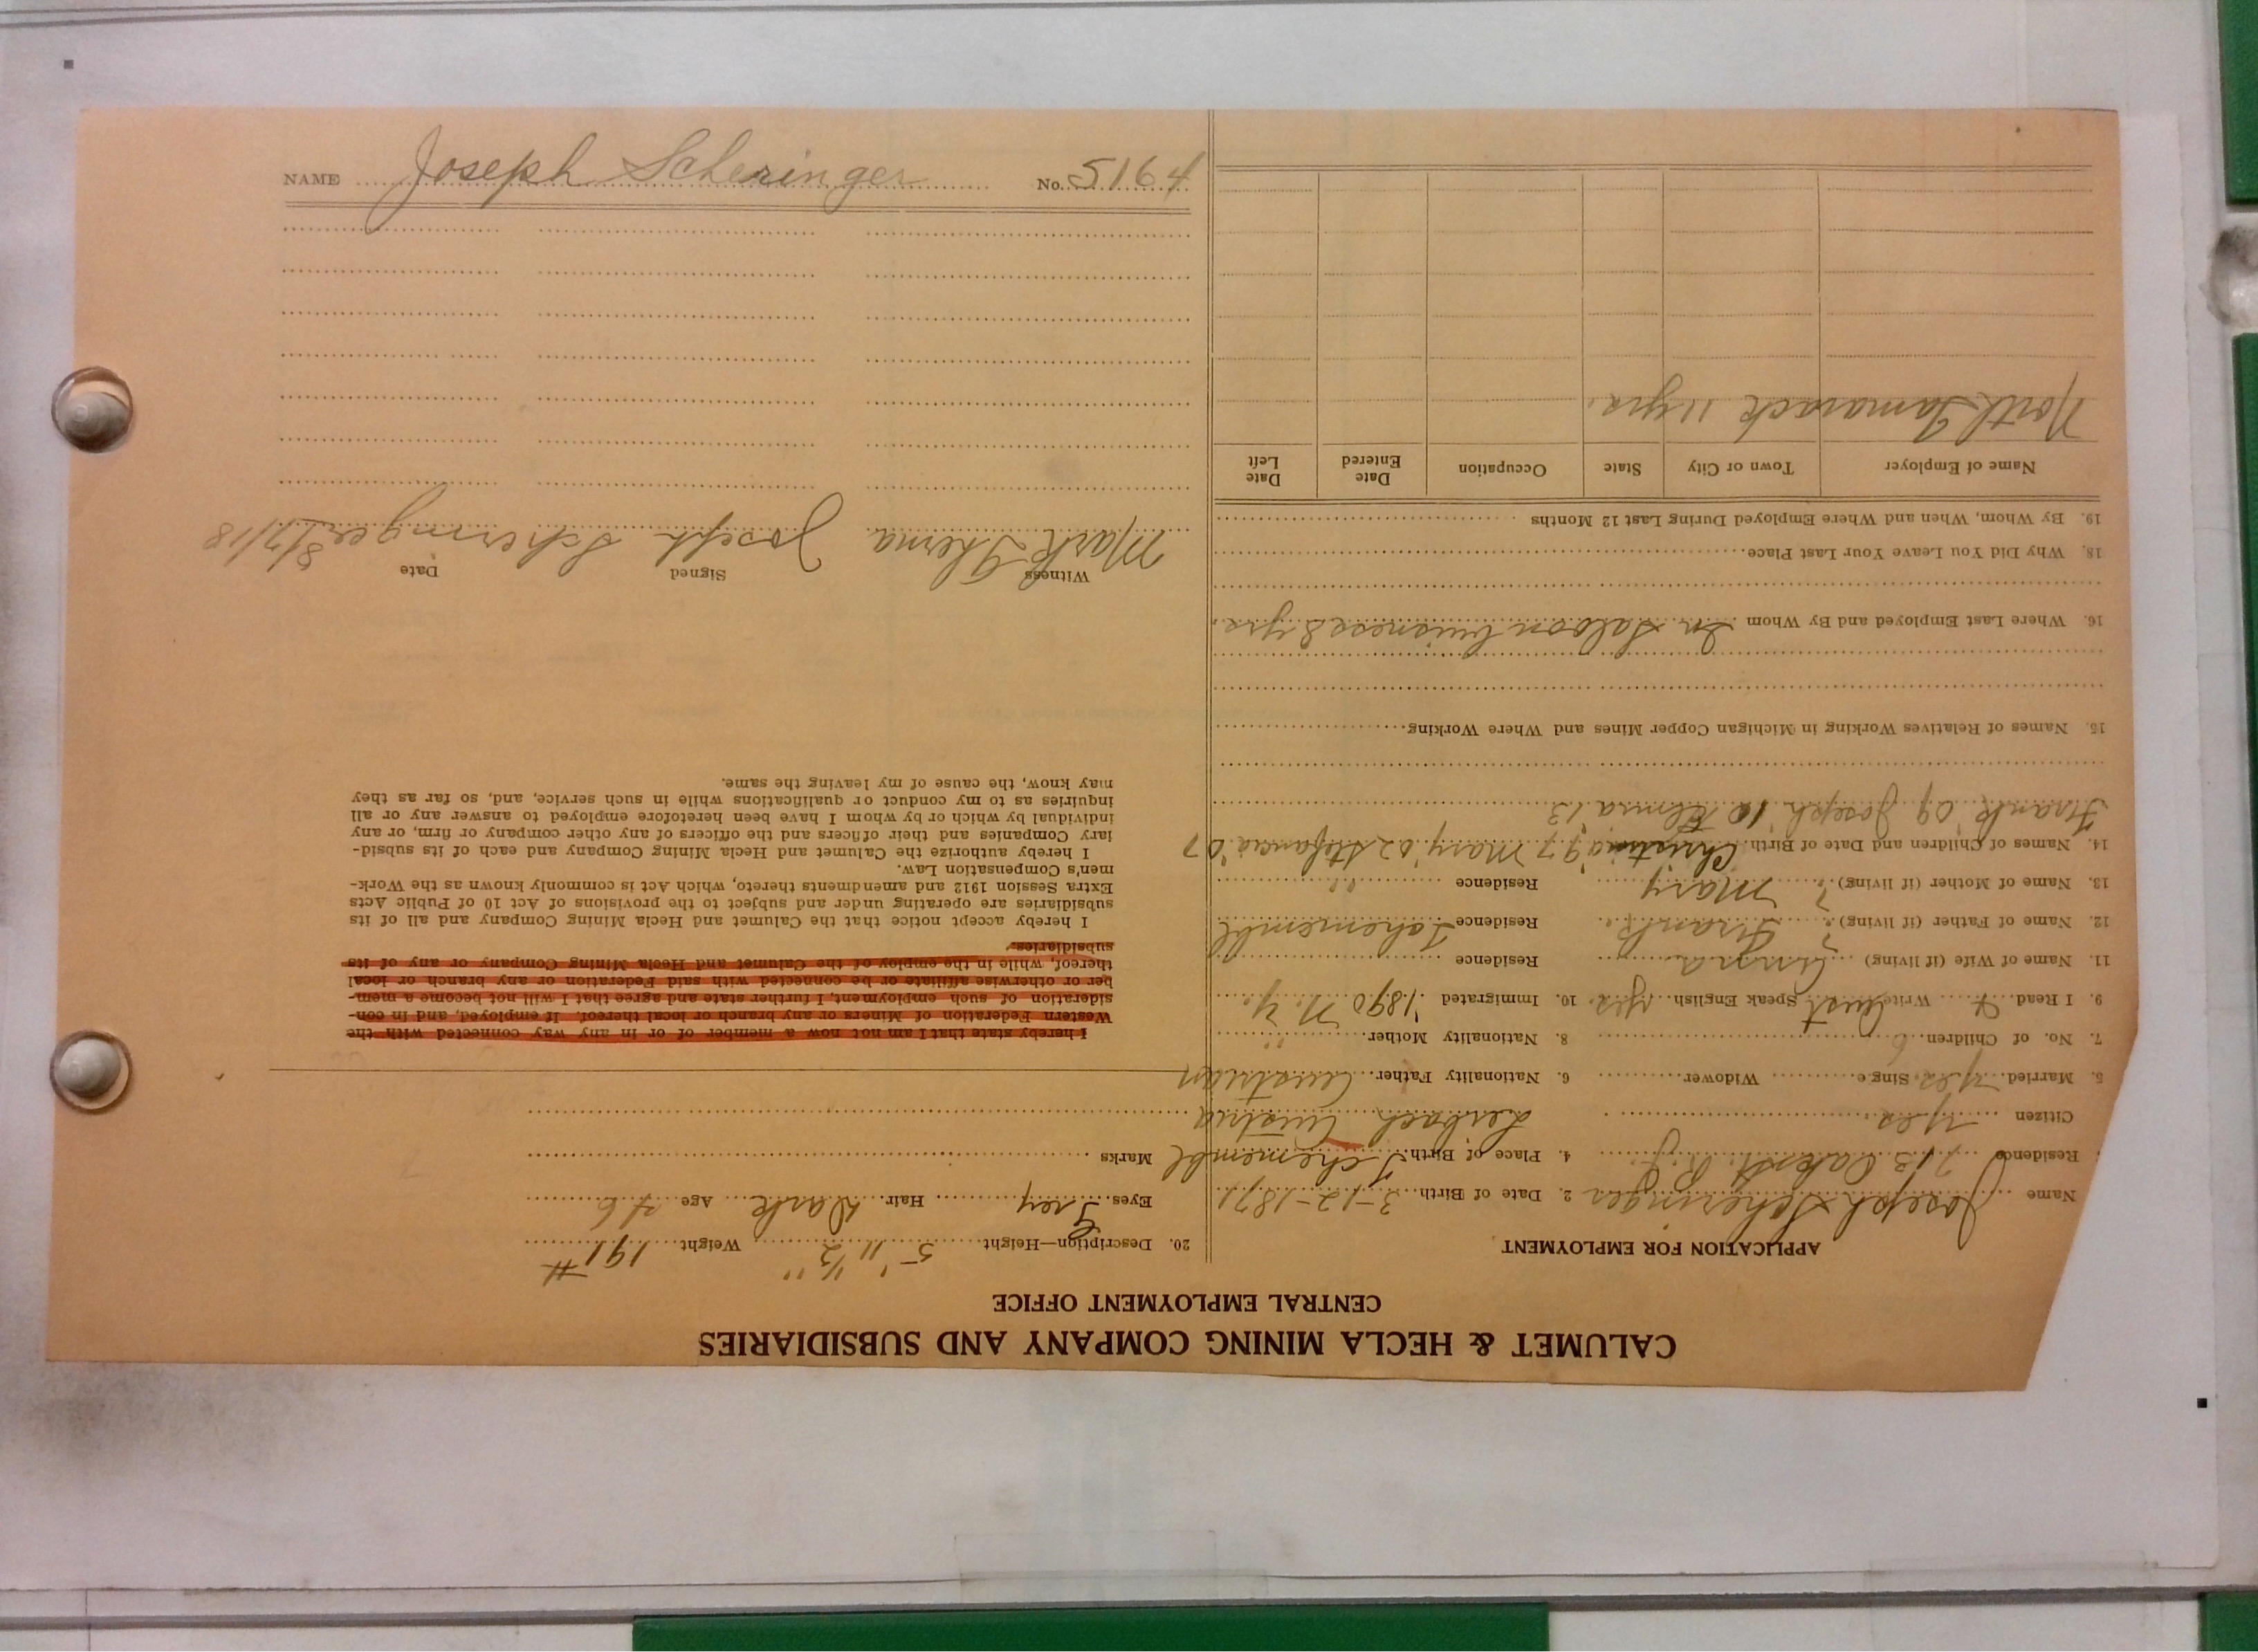 CALUMET & HECLA MINING COMPANY AND SUBSIDIARIES
CENTRAL EMPLOYMENT OFFICE
APPLICATION FOR EMPLOYMENT
Name Joseph Scheringer 2. Date of Birth 3-12-1871
Residence 713 Oak St. 4. Place of Birth Tchemembl
Citizen Yes Austria
5. Married Yes Single Widower 6. Nationality Father Austrian
7. No. of Children 6 8. Nationality Mother "
9. I Read Write Aust Speak English yes. 10. Immigrated 1890 N.Y.
11. Name of Wife (if living) Anna Residence
12. Name of Father (if living) ? Frank Residence
13. Name of Mother (if living) ? Mary Residence "
14. Names of Children and Date of Birth Christina '97 Mary '02 Stefancia '07
Frank '09 Joseph '10 Elma '13
15. Names of Relatives Working in Michigan Copper Mines and Where Working
16. Where Last Employed and By Whom In Saloon business 8 yrs.
18. Why Did You Leave Your Last Place
19. By Whom, When and Where Employed During Last 12 Months
Name of Employer Town or City State Occupation Date Entered Date Left
North Tamarack 11 yrs.
20. Description—Height 5' 11 1/2" Weight 191 #
Eyes Grey Hair Dark Age 46
Marks
I hereby state that I am not now a member of or in any way connected with the
Western Federation of Miners or any branch or local thereof. If employed, and in con-
sideration of such employment, I further state and agree that I will not become a mem-
ber or otherwise affiliate or be connected with said Federation or any branch or local
thereof, while in the employ of the Calumet and Hecla Mining Company or any of its
subsidiaries.
I hereby accept notice that the Calumet and Hecla Mining Company and all of its
subsidiaries are operating under and subject to the provisions of Act 10 of Public Acts
Extra Session 1912 and amendments thereto, which Act is commonly known as the Work-
men's Compensation Law.
I hereby authorize the Calumet and Hecla Mining Company and each of its subsid-
iary Companies and their officers and the officers of any other company or firm, or any
individual by which or by whom I have been heretofore employed to answer any or all
inquiries as to my conduct or qualifications while in such service, and, so far as they
may know, the cause of my leaving the same.
Witness Signed Date
Mark Joseph Scheringer 8/7/18
NAME Joseph Scheringer No. 5164